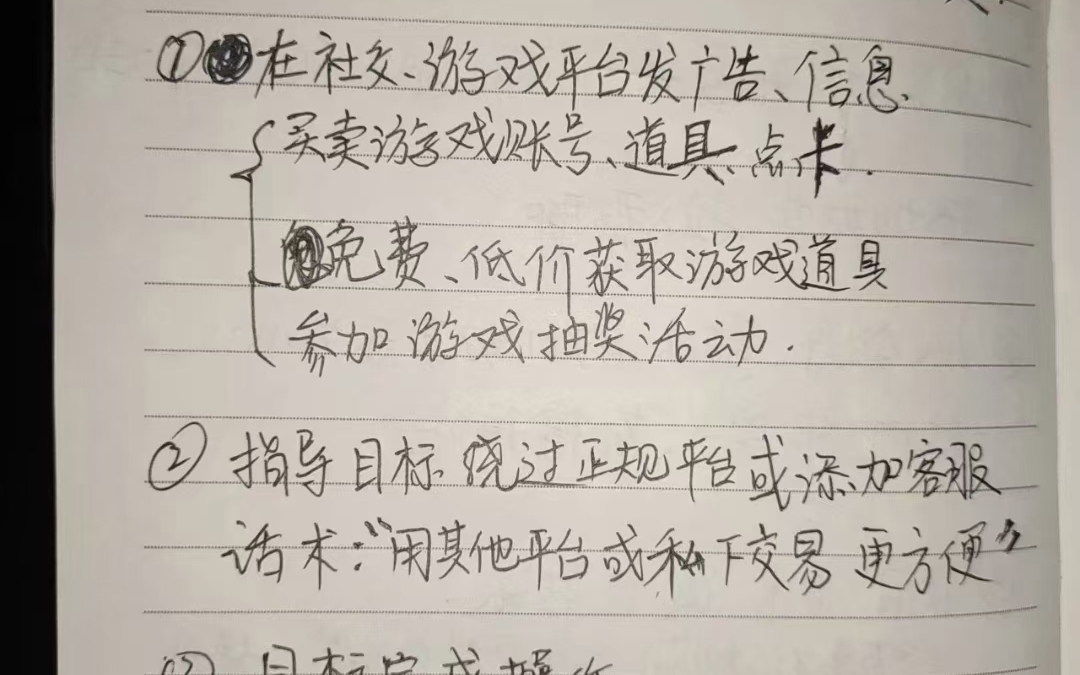 ①在社交、游戏平台发广告、信息
买卖游戏账号、道具、点卡.
免费、低价获取游戏道具
参加游戏抽奖活动.
② 指导目标绕过正规平台或添加客服
话术:“用其他平台或私下交易更方便”